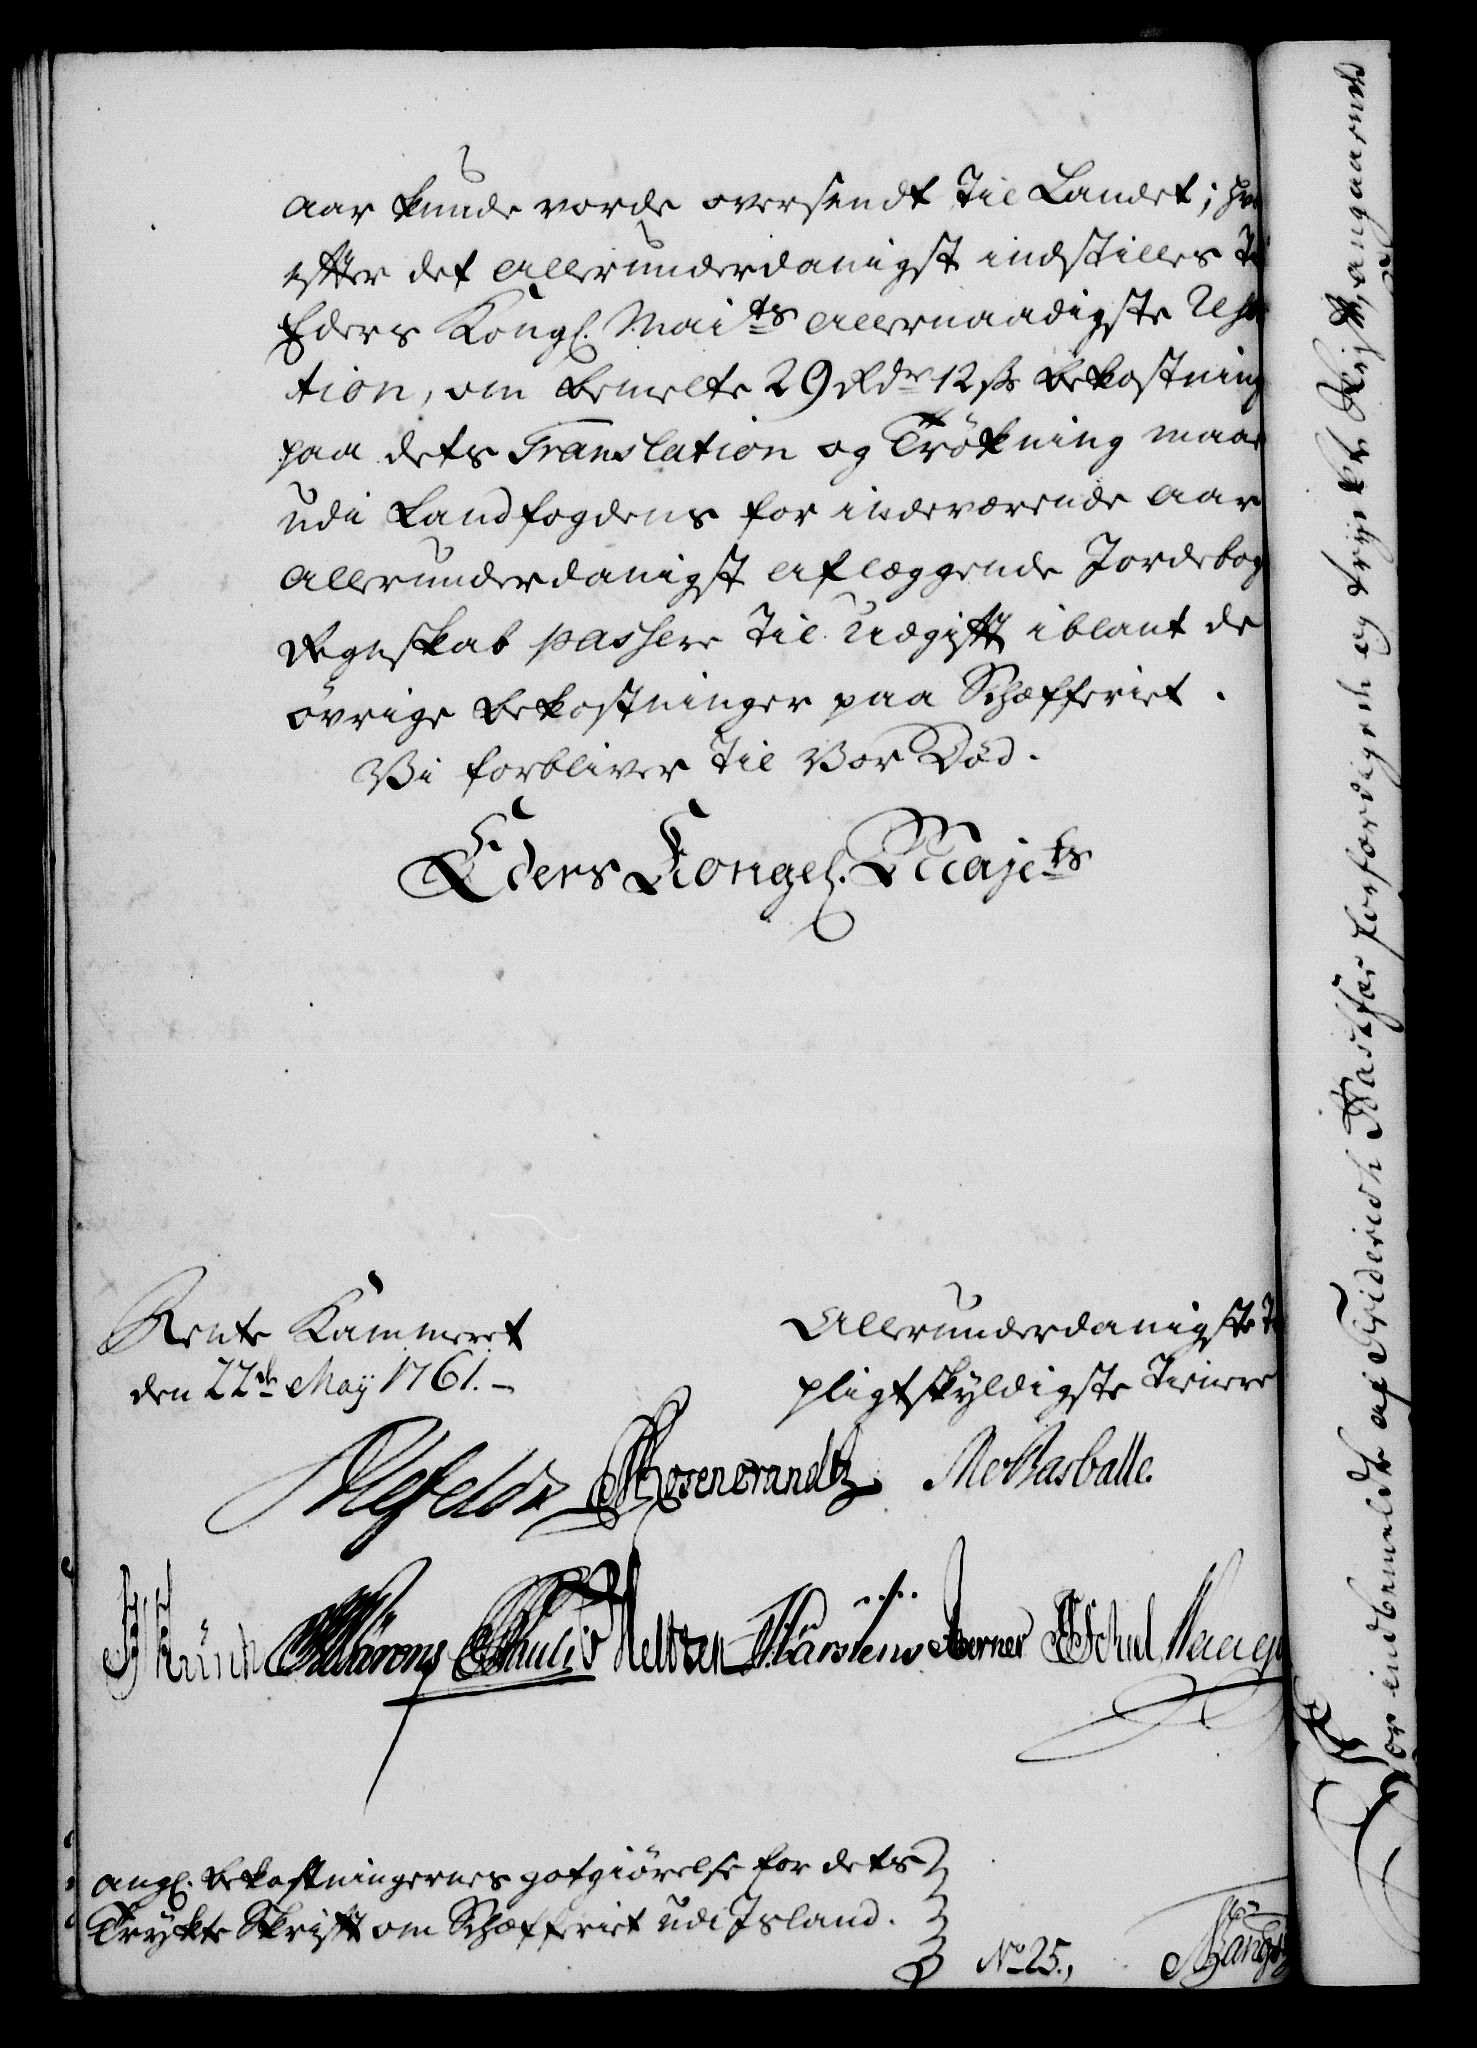 aar kunde vorde oversendt til Landet; hvor
efter det allerunderdanigst indstilles til
Eders Kongl. Mai<sup>ts</sup> allernaadigste Reso
tion, om bemelte 29 Rdr 12 ß bekostning
paa dets Translation og Trökning maae
udi Landfogdens for indeværende aar
allerunderdanigst aflæggende Jordebog
Regnskab passere til Udgift iblant de
övrige bekostninger paa Schæfferiet.
Vi forbliver til Vor Död.
Eders Kongel. Majets
Rente Kammeret
den 22de May 1761.
Allerunderdanigste
pligtskyldigste Tienere
Ahlefeldt Rosencrandtz
Schul
ang. bekostningernes gotgiörelse for dets
Trykte Skrift om Schæfferiet udi Island.
No 25.,
For indbemeldte af Friderich forfærdigede og trykte Skrift, angaaende